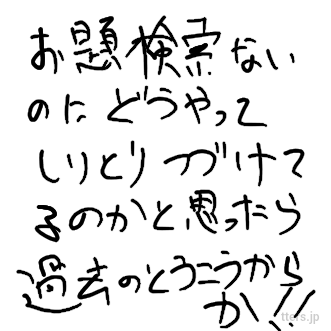 お題検索ない
のにどうやって
しりとりつづけて
るのかと思ったら
過去のとうこうから
か!!
tters.jp